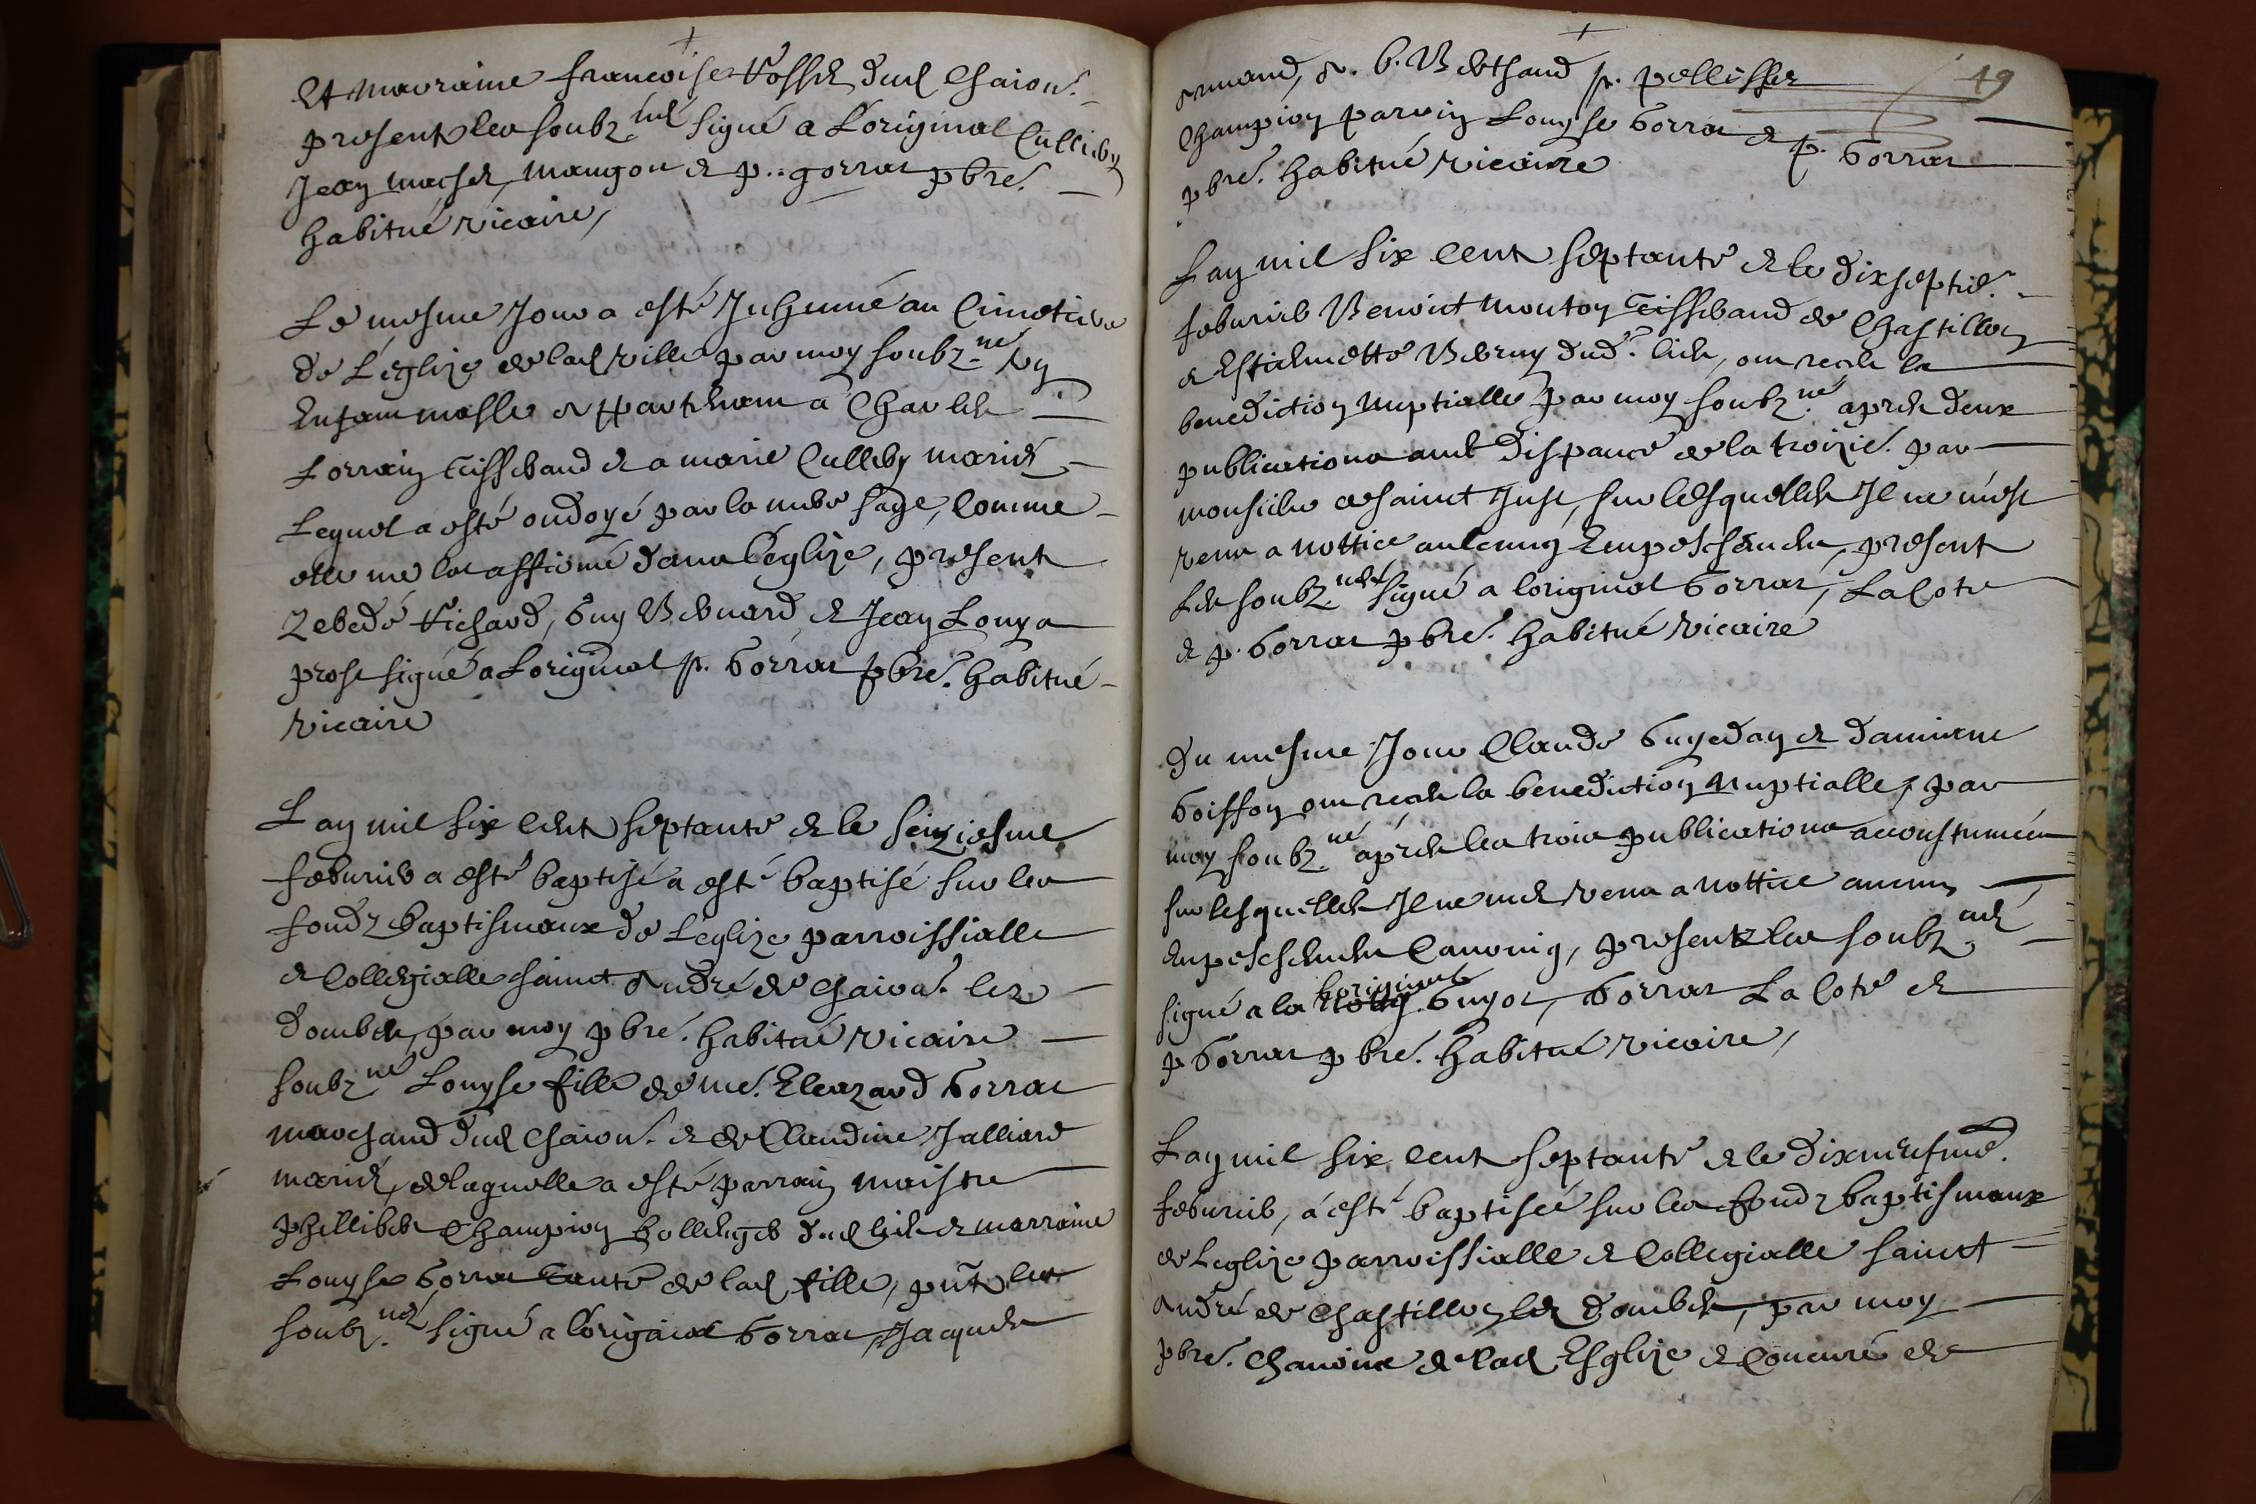 Et marraine francoise Rosset dud Chaion.
presents les soubz.nés signé a L'original Cullieby
Jean machet, mangou et p. gorrat pbre.
habitué vicaire,
Le mesme Jour a esté Inhumé au Cimetiere
de L'eglize de lad ville par moy soubz.né un
Enfant masle appartenant a Charles
Lorrain Tisserand et a marie Culleby mariés
Lequel a esté ondoyé par la mere sage, comme
elle me la affirmé dans l'eglize, present
Zebedé Richard, Guy Bernard et Jean Louys
prost signé a Loriginal p. Gorrat pbre. habitué
vicaire
Lan mil six cent septante et le seiziesme
feburier a esté baptisé a esté baptisé sur les
fondz baptismaux de Leglize parroissialle
et Collegialle saint André de Chaion. lez
dombes, par moy pbre. habitué vicaire
soubz.né Louyse fille de me. Eleazard Gorrat
marchand dud Chaion. et de Claudine Jalliard
mariés, de laquelle a esté parrain maistre
phillibert Champion boullenger dud lieu et marraine
Louyse Gorrat tante de lad fille, pñts les
soubz.nés signé a l'original Gorrat, Jacques
Armand, &. b. Berthaud p. pellisser 49
Champion parrin Louyse Gorrat et p. Gorrat
pbre. habitué vicaire
Lan mil six cent septante et le dixseptie.
feburier Benoict mouton Tisserand de Chastillon
et Estiennette Berny dud. lieu, ont receu la
benediction nuptialle par moy soubz.né apres deux
publications avec dispance de la troizie. par
monsieur de saint Just, sur lesquelles Il ne m'est
venu a nottice aulcung Empeschement, present
Les soubz.nés signé a loriginal Gorrat, La Cote
et p. Gorrat pbre. habitué vicaire
Du mesme Jour Claude Guyedan et damiane
Goisson ont receu la benediction Nuptialle, par
moy soubz.né apres les trois publications accoustumées
sur lesquelles Il ne m'est venu a nottice aucung
Enpeschement Canoniq, presentz les soubz.nés
signé a la loriginal Guyot, Gorrat La Cote et
p Gorrat pbre. habitué vicaire,
Lan mil six cent septante et le dixneufme.
feburier, a esté baptiseé sur les fondz baptismaux
de Leglize parroissialle et Collegialle saint
André de Chastillon les dombes, par moy
pbre. Chanoine de lad Esglize et Concuré de